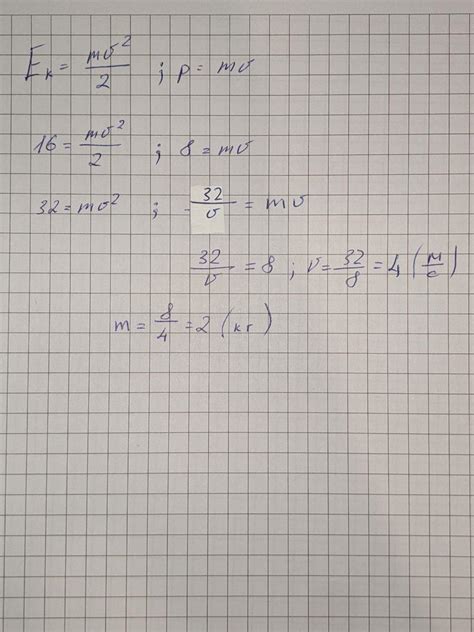 Eₖ = mv²/2 ; p = mv
16 = mv²/2 ; 8 = mv
32 = mv² ; 32/v = mv
32/v = 8 ; v = 32/8 = 4 (м/с)
m = 8/4 = 2 (кг)